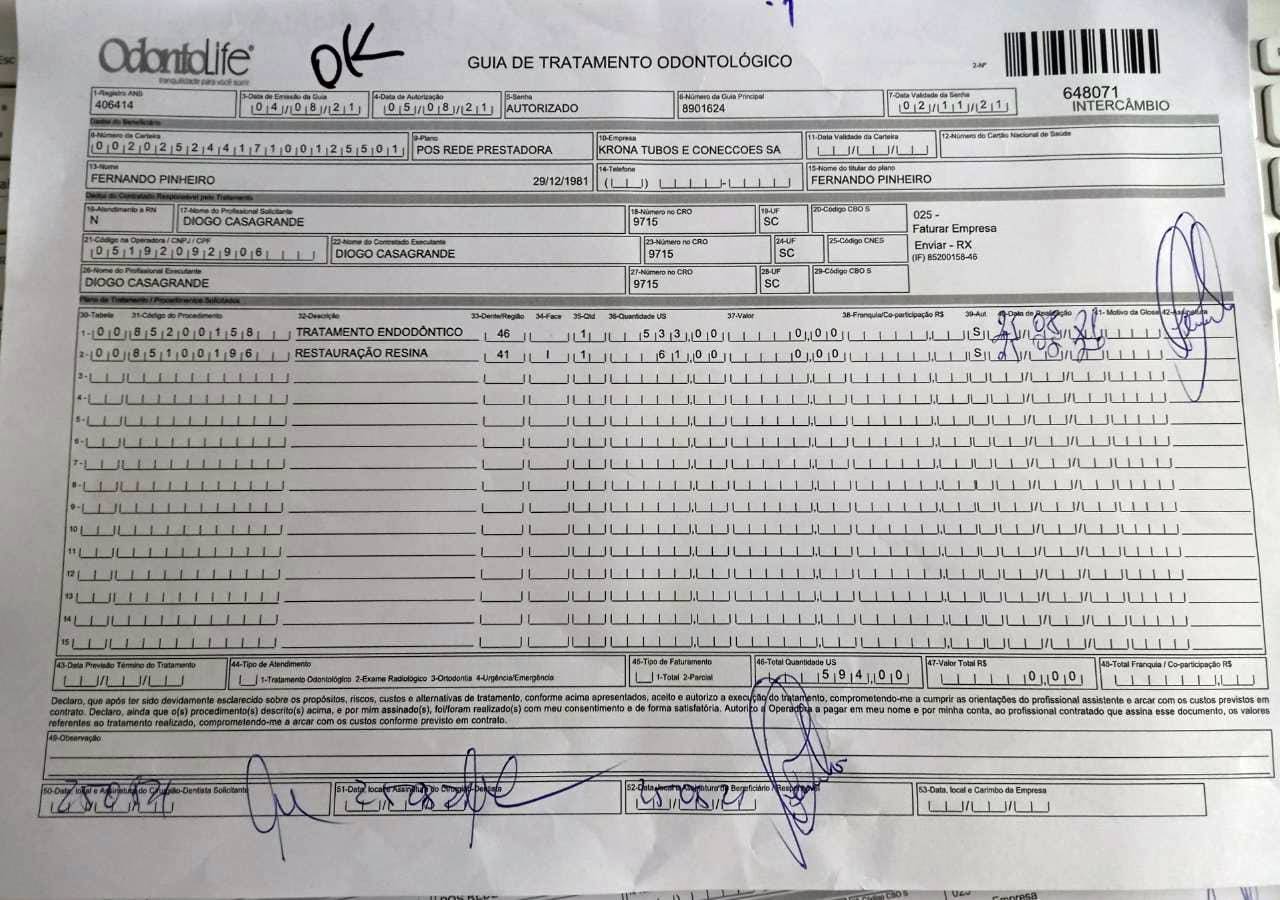 OdontoLife®
tranquilidade para você sorrir
OK
GUIA DE TRATAMENTO ODONTOLÓGICO
2-Nº
648071
INTERCÂMBIO
1-Registro ANS 3-Data de Emissão da Guia 4-Data de Autorização 5-Senha 6-Número da Guia Principal 7-Data Validade da Senha
406414 04/08/21 05/08/21 AUTORIZADO 8901624 02/11/21
Dados do Beneficiário
8-Número da Carteira 9-Plano 10-Empresa 11-Data Validade da Carteira 12-Número do Cartão Nacional de Saúde
00202524417100125501 POS REDE PRESTADORA KRONA TUBOS E CONECCOES SA
13-Nome 14-Telefone 15-Nome do titular do plano
FERNANDO PINHEIRO 29/12/1981 FERNANDO PINHEIRO
Dados do Contratado Responsável pelo Tratamento
16-Atendimento à RN 17-Nome do Profissional Solicitante 18-Número no CRO 19-UF 20-Código CBO S
N DIOGO CASAGRANDE 9715 SC
025 -
Faturar Empresa
Enviar - RX
(IF) 85200158-46
21-Código na Operadora / CNPJ / CPF 22-Nome do Contratado Executante 23-Número no CRO 24-UF 25-Código CNES
05192092906 DIOGO CASAGRANDE 9715 SC
26-Nome do Profissional Executante 27-Número no CRO 28-UF 29-Código CBO S
DIOGO CASAGRANDE 9715 SC
Plano de Tratamento / Procedimentos Solicitados
30-Tabela 31-Código do Procedimento 32-Descrição 33-Dente/Região 34-Face 35-Qtd 36-Quantidade US 37-Valor 38-Franquia/Co-participação R$ 39-Aut 40-Data de Realização 41- Motivo da Glosa 42-Assinatura
1- 00 85200158 TRATAMENTO ENDODÔNTICO 46 1 533,00 0,00 S
2- 00 85100196 RESTAURAÇÃO RESINA 41 I 1 61,00 0,00 S
3-
4-
5-
6-
7-
8-
9-
10
11
12
13
14
15
43-Data Previsão Término do Tratamento 44-Tipo de Atendimento 45-Tipo de Faturamento 46-Total Quantidade US 47-Valor Total R$ 48-Total Franquia / Co-participação R$
1-Tratamento Odontológico 2-Exame Radiológico 3-Ortodontia 4-Urgência/Emergência 1-Total 2-Parcial 594,00 0,00
Declaro, que após ter sido devidamente esclarecido sobre os propósitos, riscos, custos e alternativas de tratamento, conforme acima apresentados, aceito e autorizo a execução do tratamento, comprometendo-me a cumprir as orientações do profissional assistente e arcar com os custos previstos em
contrato. Declaro, ainda que o(s) procedimento(s) descrito(s) acima, e por mim assinado(s), foi/foram realizado(s) com meu consentimento e de forma satisfatória. Autorizo a Operadora a pagar em meu nome e por minha conta, ao profissional contratado que assina esse documento, os valores
referentes ao tratamento realizado, comprometendo-me a arcar com os custos conforme previsto em contrato.
49-Observação
50-Data, local e Assinatura do Cirurgião-Dentista Solicitante 51-Data, local e Assinatura do Cirurgião-Dentista 52-Data, local e Assinatura do Beneficiário / Responsável 53-Data, local e Carimbo da Empresa